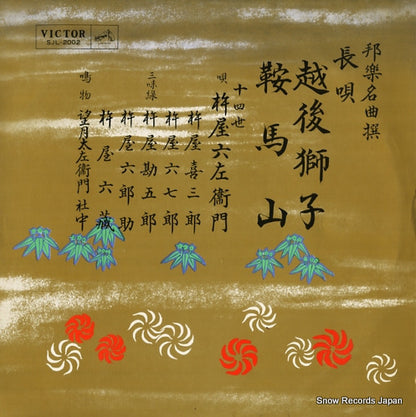 VICTOR
SJL-2002
邦樂名曲撰
長唄
越後獅子
鞍馬山
十四世
唄 杵屋六左衞門
杵屋喜三郎
杵屋六七郎
三味線 杵屋勘五郎
杵屋六郎助
杵屋六藏
鳴物 望月太左衞門社中
Snow Records Japan